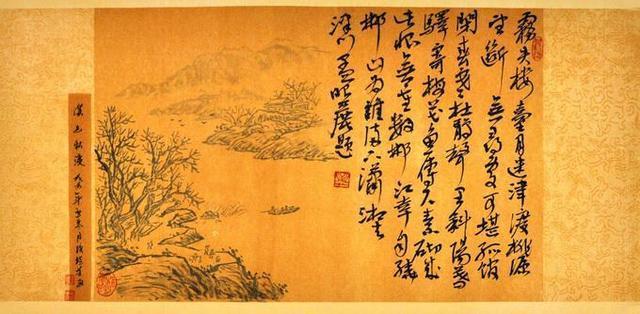 霧失樓臺月迷津渡桃源
望斷無尋處可堪孤館
閉春寒杜鵑聲里斜陽暮
驛寄梅花魚傳尺素砌成
此恨無重數郴江幸自繞
郴山為誰流下瀟湘去
題